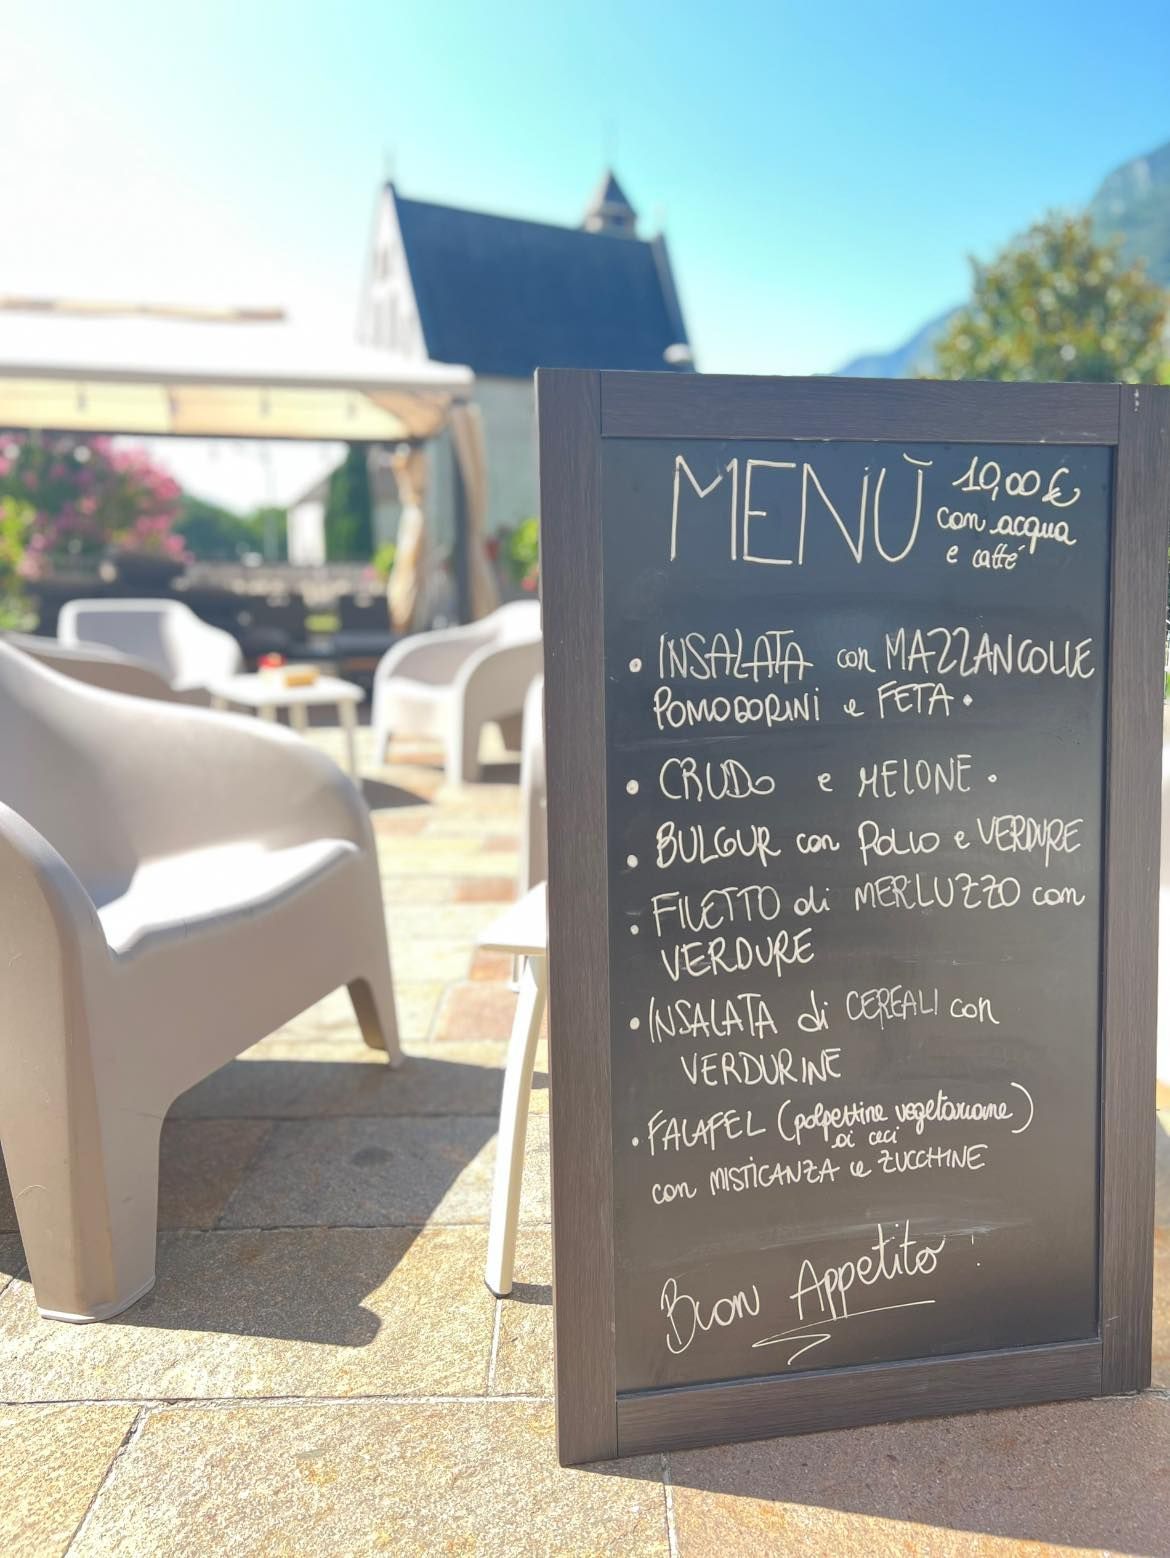 MENÙ 10,00 €
con acqua
e caffé
• INSALATA con MAZZANCOLLE
POMODORINI e FETA •
• CRUDO e MELONE •
• BULGUR con POLLO e VERDURE
• FILETTO di MERLUZZO con
VERDURE
• INSALATA di CEREALI con
VERDURINE
• FALAFEL (polpettine vegetariane)
di ceci
con MISTICANZA e ZUCCHINE
Buon Appetito !